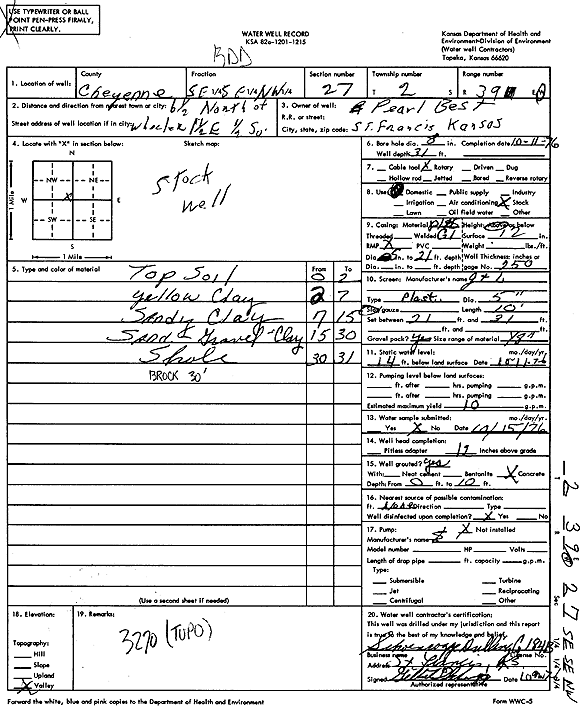 USE TYPEWRITER OR BALL
POINT PEN-PRESS FIRMLY,
PRINT CLEARLY.
WATER WELL RECORD
KSA 82a-1201-1215
Kansas Department of Health and
Environment-Division of Environment
(Water well Contractors)
Topeka, Kansas 66620
1. Location of well:
County
Cheyenne
Fraction
SE 1/4 SE 1/4 NW 1/4
Section number
27
Township number
T 2 S
Range number
R 39 E
2. Distance and direction from nearest town or city: 6 1/2 North of
Street address of well location if in city: Wheeler
3. Owner of well: Pearl Best
R.R. or street:
City, state, zip code: St. Francis Kansas
4. Locate with "X" in section below:
Sketch map:
N
NW NE
W X E
SW SE
S
1 Mile
1 Mile
Stock
well
5. Type and color of material
From To
Top Soil 0 2
yellow Clay 2 7
Sandy Clay 7 15
Sand & Gravel - Clay 15 30
Shale 30 31
BROCK 30'
(Use a second sheet if needed)
6. Bore hole dia. 8 in. Completion date 10-11-76
Well depth 31 ft.
7. Cable tool X Rotary Driven Dug
Hollow rod Jetted Bored Reverse rotary
8. Use: Domestic Public supply Industry
Irrigation Air conditioning X Stock
Lawn Oil field water Other
9. Casing: Material Height: Above or below
Threaded Welded Surface 12 in.
RMP X PVC Weight lbs./ft.
Dia. 5 in. to 21 ft. depth Wall Thickness: inches or
Dia. in. to ft. depth gage No. .250
10. Screen: Manufacturer's name
Type Plast. Dia. 5"
Slot/gauze Length 10'
Set between 21 ft. and 31 ft.
ft. and ft.
Gravel pack? yes Size range of material
11. Static water level: mo./day/yr.
14 ft. below land surface Date 10-11-76
12. Pumping level below land surfaces:
ft. after hrs. pumping g.p.m.
ft. after hrs. pumping g.p.m.
Estimated maximum yield 10 g.p.m.
13. Water sample submitted: mo./day/yr.
Yes X No Date 10/15/76
14. Well head completion:
Pitless adapter 12 Inches above grade
15. Well grouted? yes
With: Neat cement Bentonite X Concrete
Depth: From 0 ft. to 10 ft.
16. Nearest source of possible contamination:
ft. Direction Type
Well disinfected upon completion? X Yes No
17. Pump: X Not installed
Manufacturer's name
Model number HP Volts
Length of drop pipe ft. capacity g.p.m.
Type:
Submersible Turbine
Jet Reciprocating
Centrifugal Other
18. Elevation:
Topography:
Hill
Slope
Upland
X Valley
19. Remarks:
3270 (TOPO)
20. Water well contractor's certification:
This well was drilled under my jurisdiction and this report
is true to the best of my knowledge and belief.
Business name License No.
Address St. Francis, KS
Signed Date
Authorized representative
Forward the white, blue and pink copies to the Department of Health and Environment
Form WWC-5